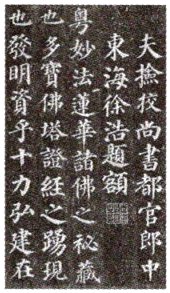 大撿挍尚書都官郎中
東海徐浩題額
粵妙法蓮華諸佛之秘藏
也多寶佛塔證經之踴現
也發明資乎十力弘建在